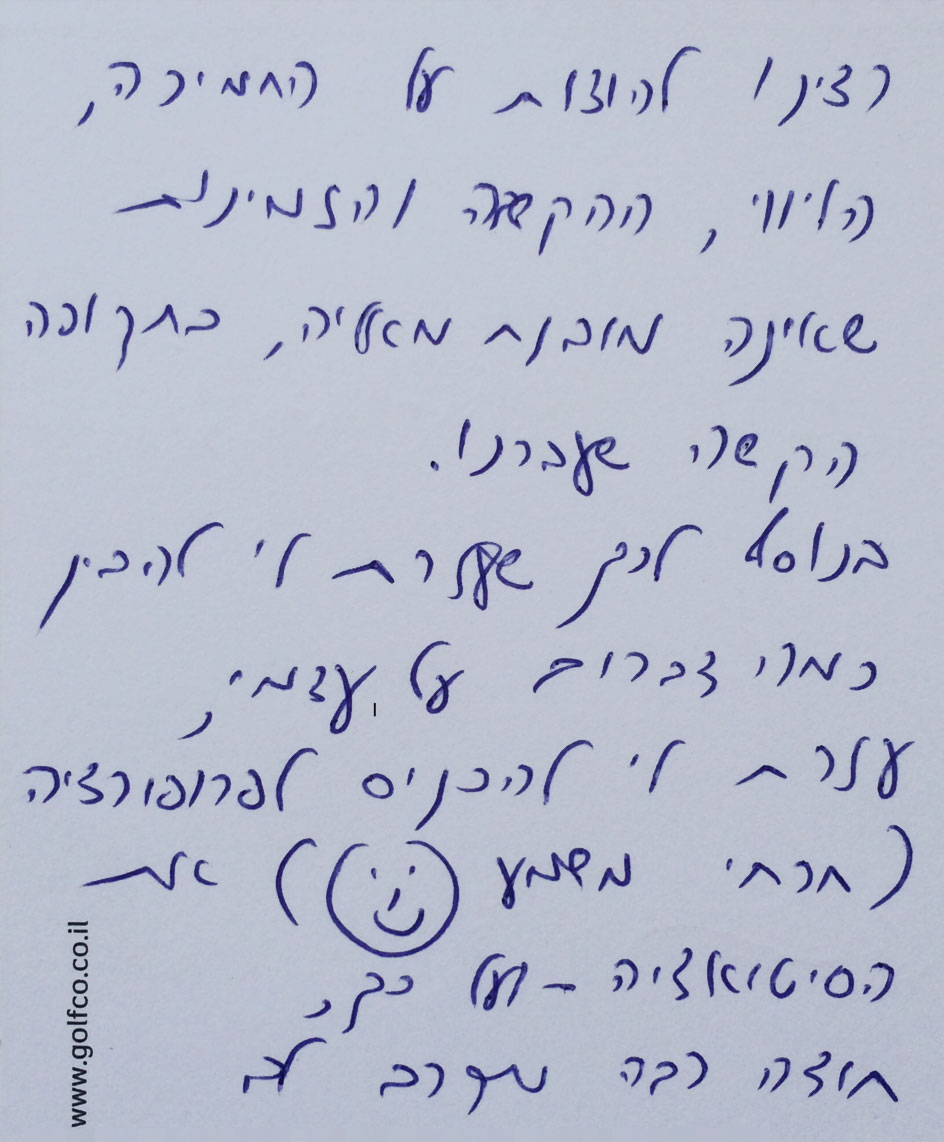 רצינו להודות על התמיכה,
הליווי, ההקשבה והזמינות
שאינה מובנת מאליה, בתקופה
הקשה שעברנו.
בנוסף לכך שעזרת לי להבין
כמה דברים על עצמי,
עזרת לי להכניס לפרופורציה
(תרתי משמע ☺) את
הסיטואציה – ועל כך,
תודה רבה מקרב לב
www.golfco.co.il